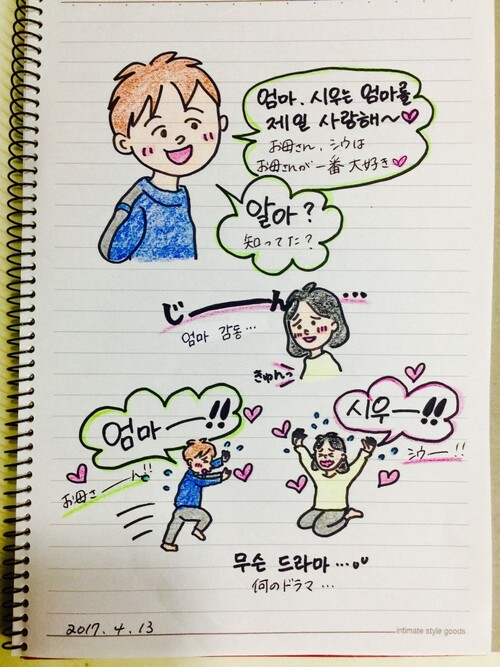 엄마, 시우는 엄마를
제일 사랑해~♡
お母さん、シウは
お母さんが一番大好き♡
알아?
知ってた?
じーーん...
엄마 감동...
きゅんっ
엄마ー!!
お母さーん!!
시우ー!!
シウー!!
무슨 드라마...
何のドラマ...
2017. 4. 13
intimate style goods